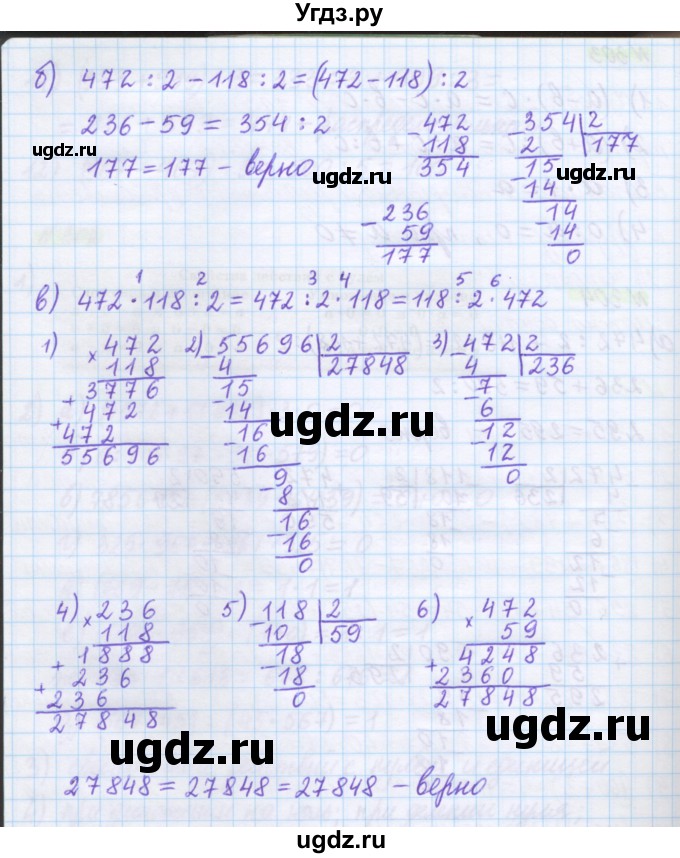 Угдз.ру
б) 472 : 2 − 118 : 2 = (472 − 118) : 2
236 − 59 = 354 : 2
177 = 177 − верно
−472
118
354
−354|2
2 |177
−15
14
−14
14
0
−236
59
177
ugdz.ru
ugdz.ru
ugdz.ru
1 2 3 4 5 6
в) 472 · 118 : 2 = 472 : 2 · 118 = 118 : 2 · 472
1) ×472
118
+3776
+472
472
55696
2) −55696|2
4 |27848
−15
14
−16
16
−9
8
−16
16
0
3) −472|2
4 |236
−7
6
−12
12
0
ugdz.ru
ugdz.ru
4) ×236
118
+1888
+236
236
27848
5) −118|2
10 |59
−18
18
0
6) ×472
59
+4248
2360
27848
ugdz.ru
ugdz.ru
27848 = 27848 = 27848 − верно
ugdz.ru